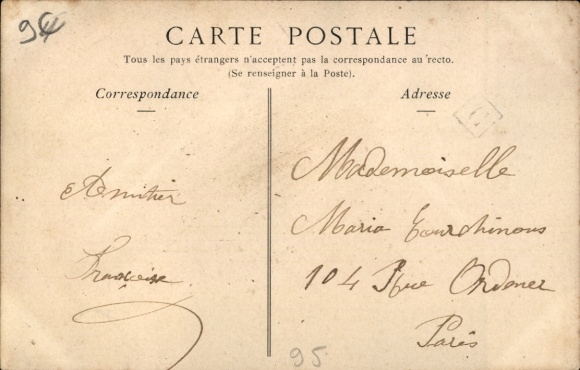 94
CARTE POSTALE
Tous les pays étrangers n'acceptent pas la correspondance au recto.
(Se renseigner à la Poste).
Correspondance
Adresse
Amitier
Françoise
Mademoiselle
Maria
104 Rue Ordener
Paris
95